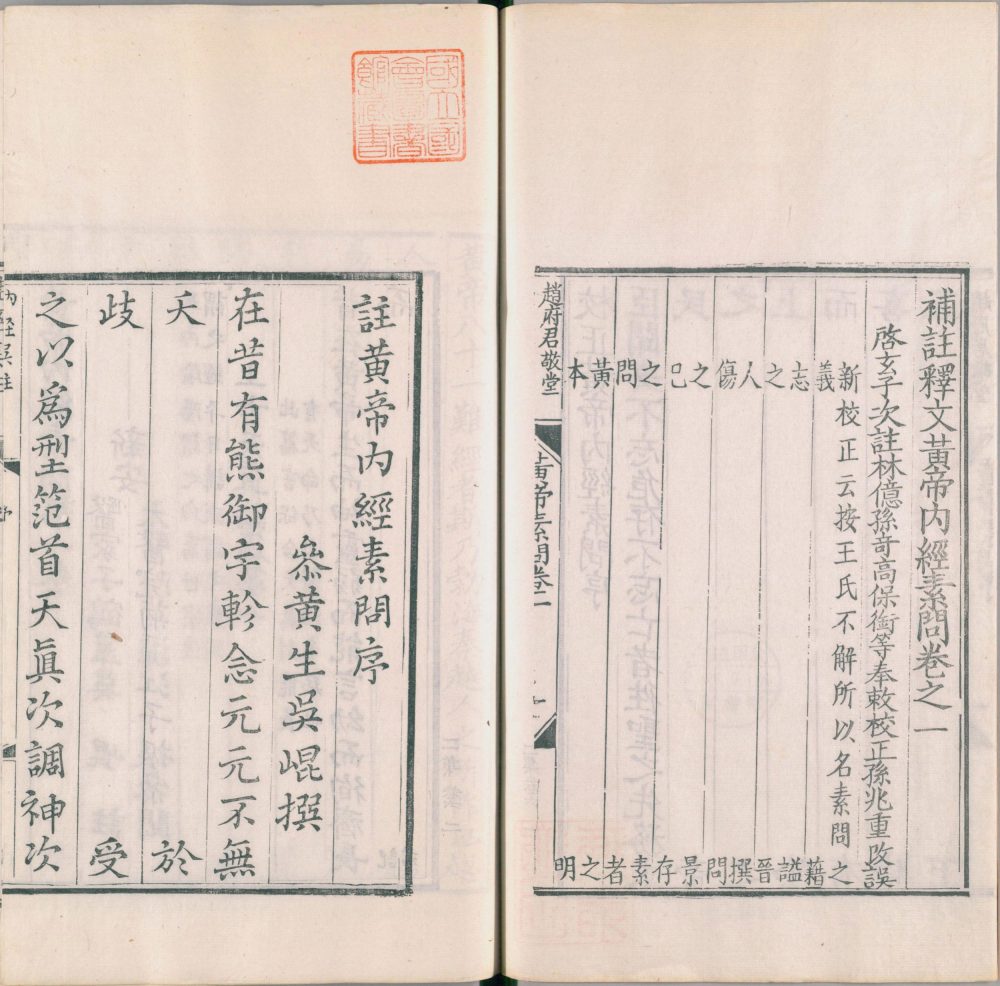 補註釋文黃帝內經素問卷之一
啓玄子次註林億孫竒高保衡等奉敕校正孫兆重改誤
新校正云按王氏不解所以名素問之
義 藉
志 謚
之 晉
人 撰
傷 問
之 景
已 存
之 素
問 者
黃 之
本 明
趙府居敬堂
黃帝素問卷一
國立國
會圖書
館藏書
註黃帝內經素問序
叅黃生吳崐撰
在昔有熊御宇軫念元元不無
夭 於
歧 受
之以爲型范首天眞次調神次
內經吳註